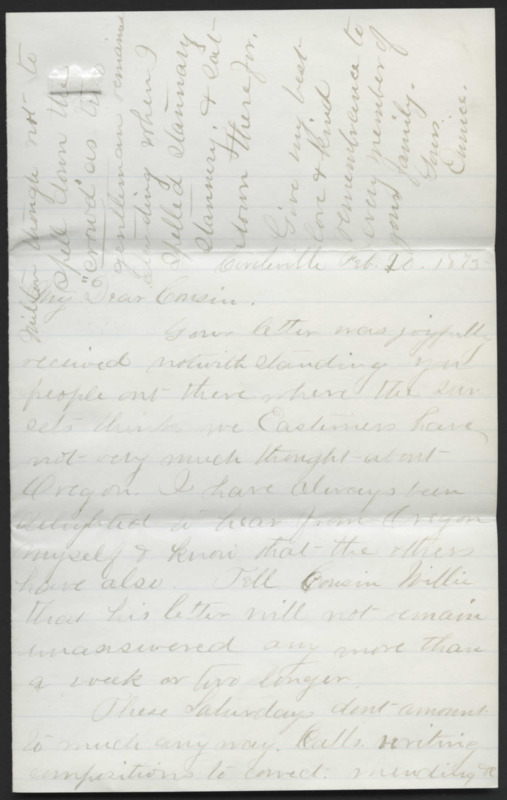 Circleville Feb. 20. 1875
My Dear Cousin.
Your letter was joyfully
received notwithstanding you
people out there where the sun
sets think we Easterners have
not very much thought about
Oregon. I have always been
delighted to hear from Oregon
myself & know that the others
have also. Tell Cousin Willie
that his letter will not remain
unanswered any more than
a week or two longer.
These Saturdays dont amount
to much any way. Calls writing
compositions to correct. mending &c
though not to
spell down the
"crowd" as the
gentleman remained
standing when I
spelled stannary
stannery, & sat
down therefor.
Give my best
love & kind
remembrance to
every member of
your family.
Yours.
Eunice.